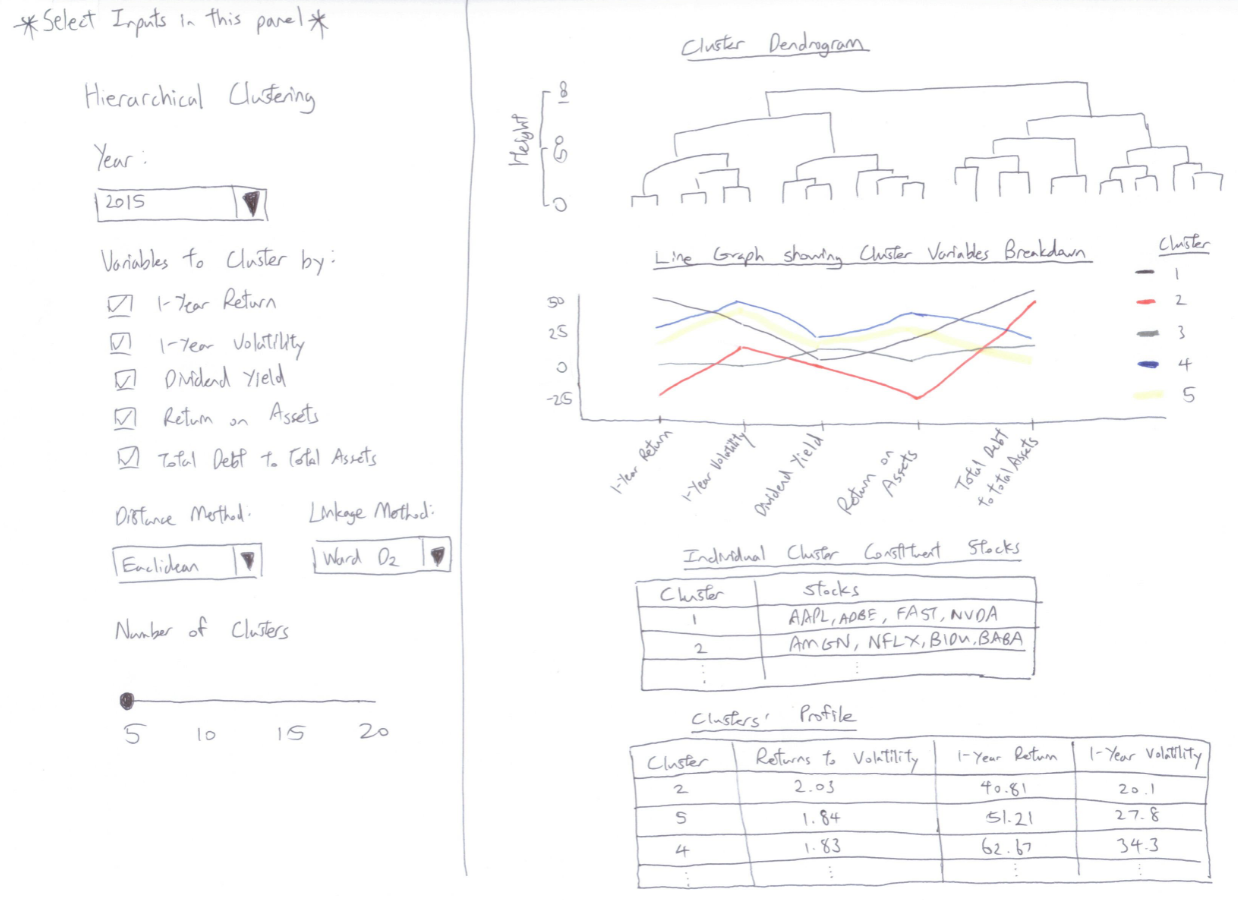 *Select Inputs in this panel*
Hierarchical Clustering
Year:
2015
Variables to Cluster by:
1-Year Return
1-Year Volatility
Dividend Yield
Return on Assets
Total Debt to Total Assets
Distance Method:
Linkage Method:
Euclidean
Ward D2
Number of Clusters
5 10 15 20
Cluster Dendrogram
Height
8
0
Line Graph showing Cluster Variables Breakdown
Cluster
1
2
3
4
5
50
25
0
-25
1-Year Return
1-Year Volatility
Dividend Yield
Return on
Assets
Total Debt
to Total Assets
Individual Cluster Constituent Stocks
Cluster Stocks
1 AAPL, ADBE, FAST, NVDA
2 AMGN, NFLX, BIDU, BABA
Clusters' Profile
Cluster Returns to Volatility 1-Year Return 1-Year Volatility
2 2.03 40.81 20.1
5 1.84 51.21 27.8
4 1.83 62.67 34.3